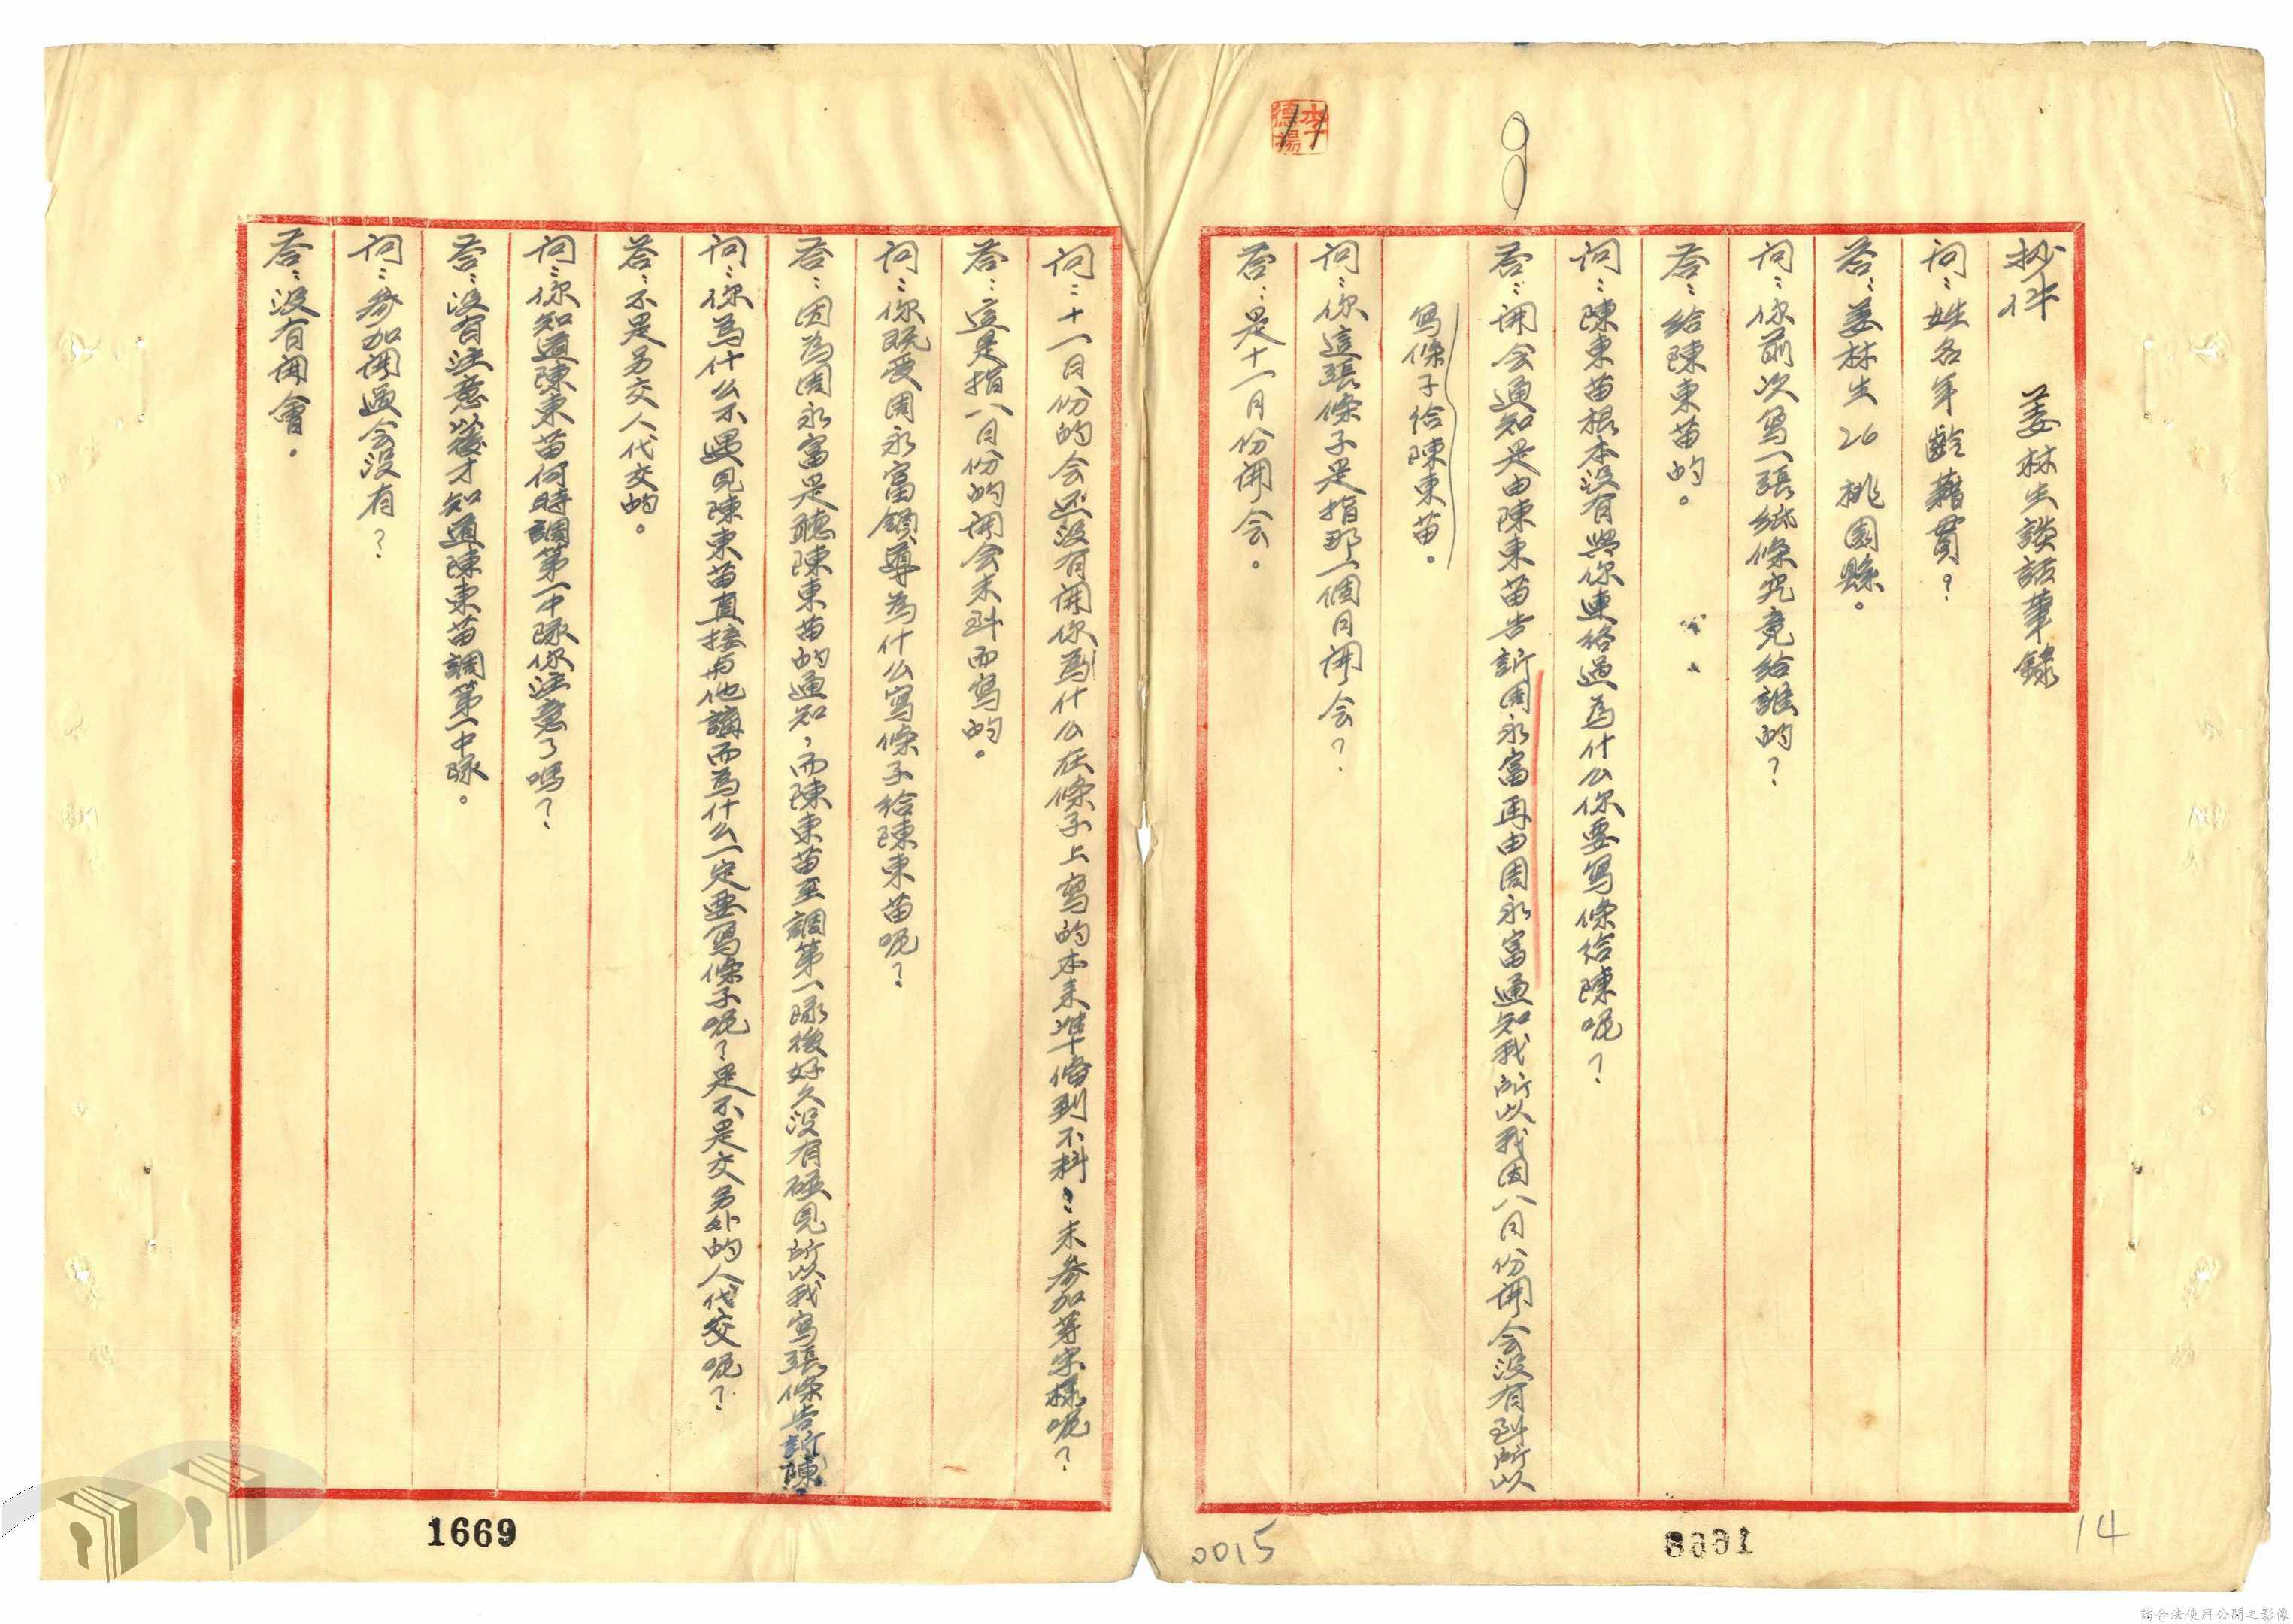 抄件　姜林生談話筆錄
问：姓名年齡藉貫？
答：姜林生26桃園縣。
问：你前次写一張紙條究竟給誰的？
答：給陳東苗的。
问：陳東苗根本没有與你連络過為什么你要写條给陳呢？
答：開会通知是由陳東苗告訴周永富再由周永富通知我所以我因八月份開会没有到所以
写條子给陳東苗。
问：你這張條子是指那一個月開会？
答：是十一月份開会。
问：十一月份的会还没有開你為什么在條子上寫的本来準備到不料：未参加等字樣呢？
答：這是指八月份的開会未到而寫的。
问：你既受周永富領導為什么寫條子給陳東苗呢？
答：因為周永富是聽陳東苗的通知，而陳東苗至調第一隊後好久没有碰見所以我寫張條告訴陳
问：你為什么不遇見陳東苗直接与他講而為什么一定要写條子呢？是不是交另外的人代交呢？
答：不是另交人代交的。
问：你知道陳東苗何時調第一中隊你注意了嗎？
答：没有注意以後才知道陳東苗調第一中隊。
问：参加開過会没有？
答：没有開會。
李德揚
1669
1668
0015
14
請合法使用公開之影像